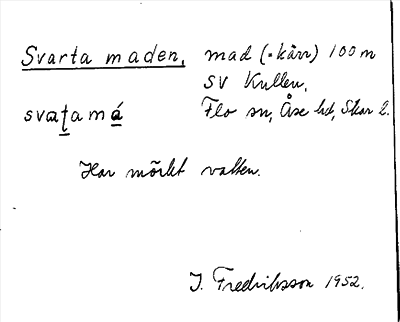 Svarta maden, mad (=kärr) 100 m
SV Kullen,
svaṯamá̱ Flo sn, Åse hd, Skar l.
Har mörkt vatten.
I. Fredriksson 1952.